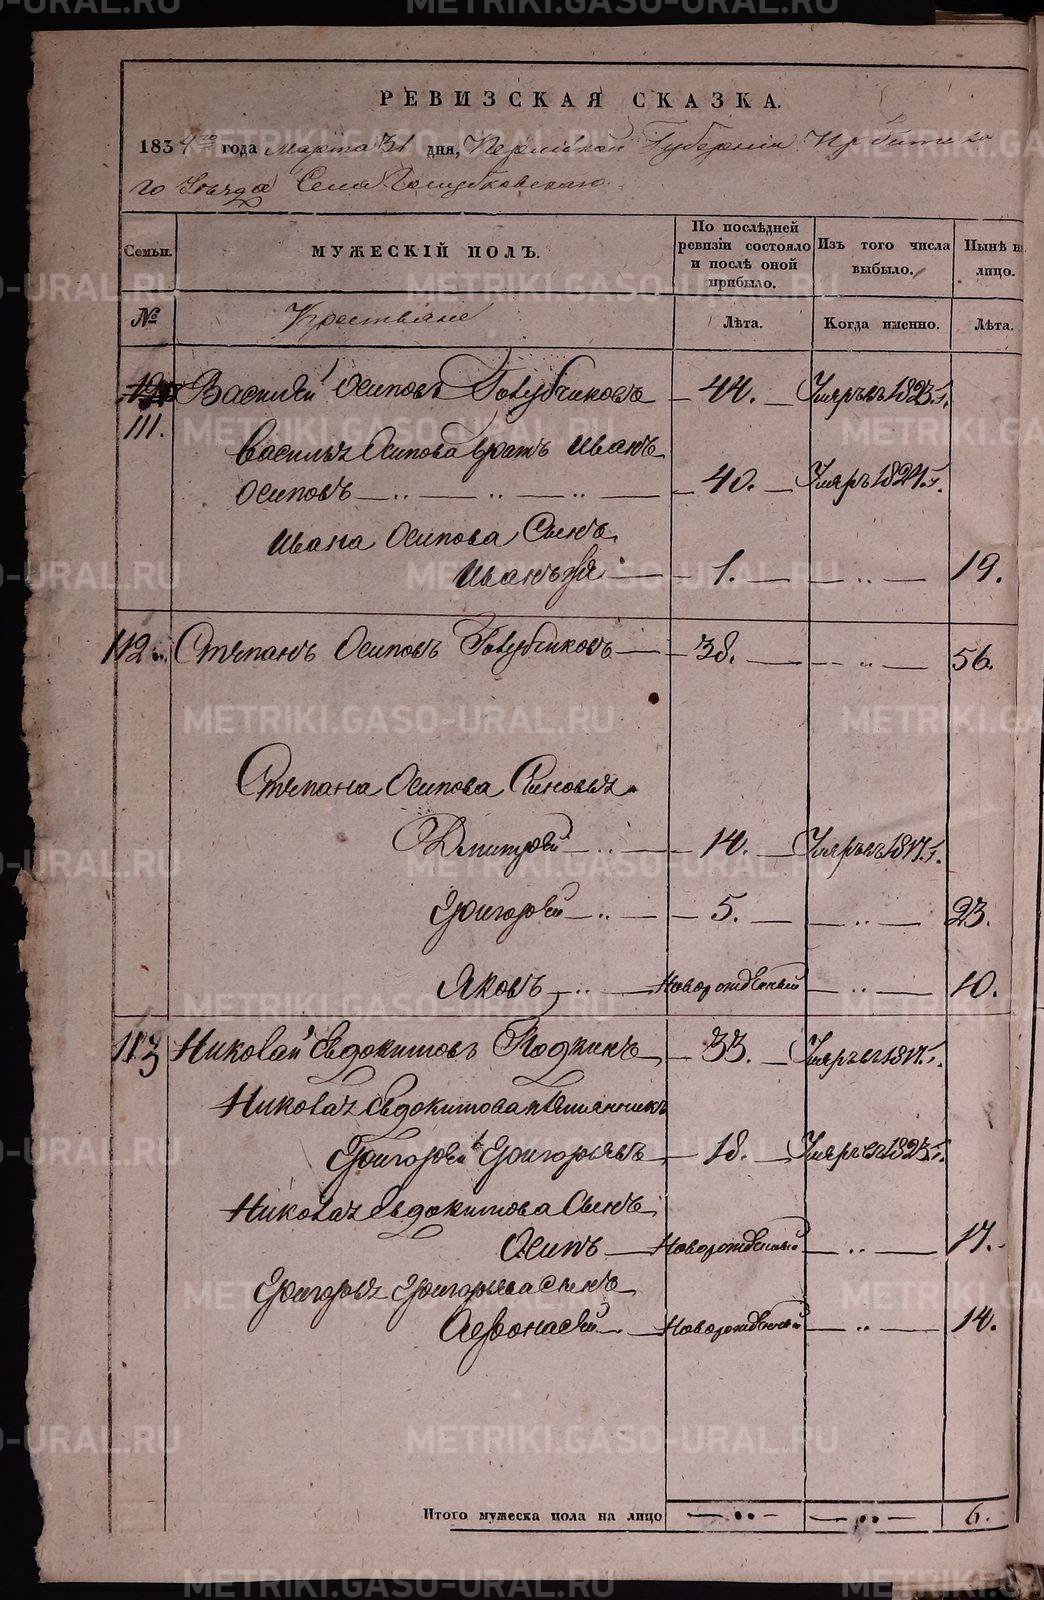 РЕВИЗСКАЯ СКАЗКА.
1834го года марта 31 дня, Пермской Губернiи Ирбитска
го Уѣзда Села Голубковскаго
Семьи. МУЖЕСКIЙ ПОЛЪ. По послѣдней ревизiи состояло и послѣ оной прибыло. Изъ того числа выбыло. Нынѣ на лицо.
№ Крестьяне Лѣта. Когда именно. Лѣта.
111. Василей Осиповъ Голубчиковъ 44. Умръ въ 1823.г.
Василья Осипова братъ Иванъ
Осиповъ 40. Умръ 1824.г.
Ивана Осипова Сынъ
Иванъ 1. 19.
112 Степанъ Осиповъ Голубчиковъ 38. 56.
Степана Осипова Сыновья
Дмитрей 14. Умръ въ 1817.г.
Григорей 5. 23.
Яковъ Новорожденный 10.
113 Николай Евдокимовъ Подкинъ 33. Умръ въ 1817.г.
Николая Евдокимова племянникъ
Григорей Григорьевъ 18. Умръ въ 1825.г.
Николая Евдокимова Сынъ
Осипъ Новорожденный 17.
Григорья Григорьева сынъ
Афонасей Новорожденный 14.
Итого мужеска пола на лицо 6.
METRIKI.GASO-URAL.RU